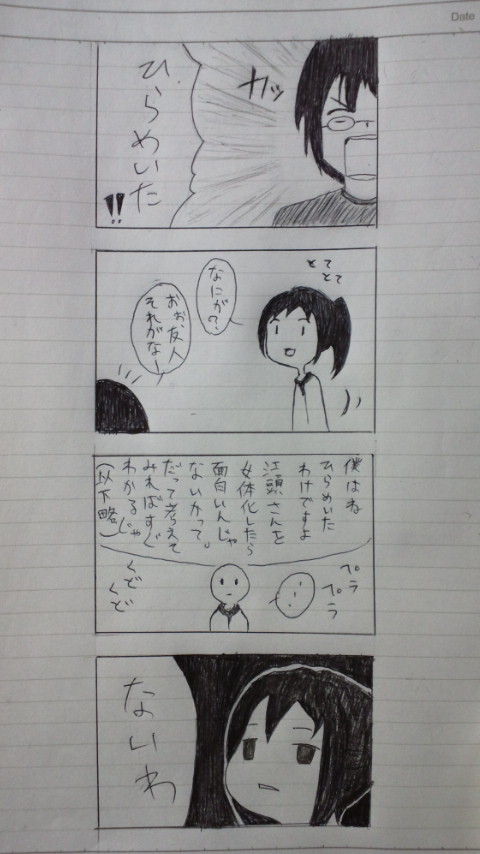 Date
ひらめいた
!!
カッ
とてとて
なにが?
おお、友人
それがなー
僕はね
ひらめいた
わけですよ
江頭さんを
女体化したら
面白いんじゃ
ないかって。
だって考えて
みればすぐ
わかるじゃ
(以下略)
ペラ
ペラ
くど
くど
ないわ